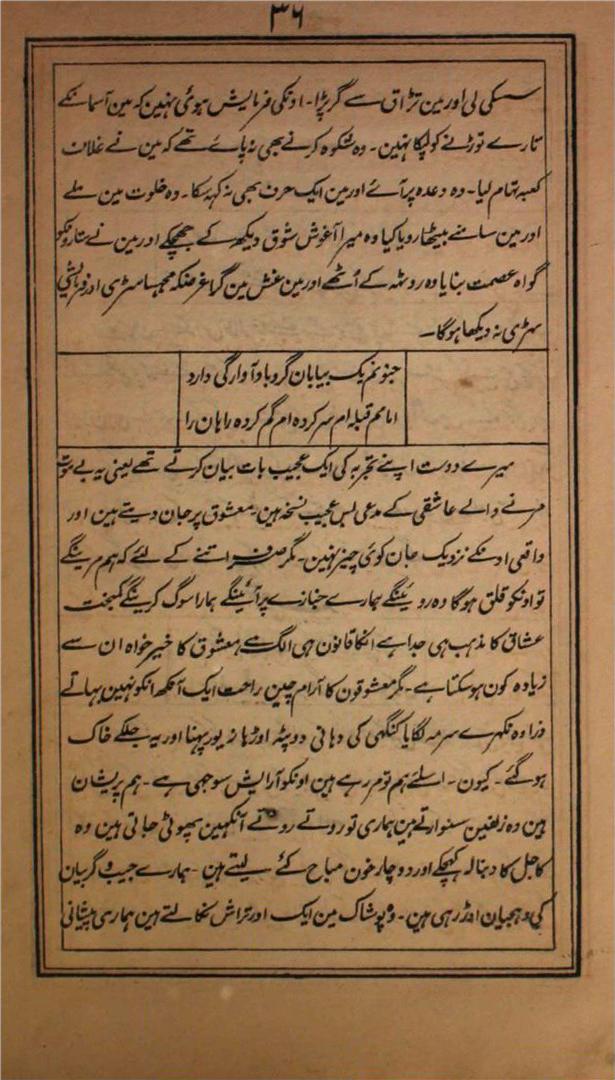 ۳۶
سسکی لی اور مین تڑاق سے گر پڑا۔ اونکی فرمایش ہوئی نہین کہ مین آسمانکے
تارے توڑنے کو لپکا نہین۔ وہ شکوہ کرنے بھی نہ پائے تھے کہ مین نے غلاف
کعبہ تھام لیا۔ وہ وعدہ پر آئے اور مین ایک حرف بھی نہ کہہ سکا۔ وہ خلوت مین ملے
اور مین سامنے بیٹھا رویا کیا وہ میرا آغوش شوق دیکھ کے جھجکے اور مین نے ستارونکو
گواہ عصمت بنایا وہ روٹھ کے اُٹھے اور مین غش مین گرا غرضکہ مجھسا سڑی اور فرمایشی
سڑی نہ دیکھا ہوگا۔
جنونم یک بیابان گردباد آوارگی دارد
امامم قبلہ ام سر کردہ ام گم کردہ راہان را
میرے دوست اپنے تجربہ کی ایک عجیب بات بیان کرتے تھے یعنی یہ بے موت
مرنے والے عاشقی کے مدعی بس عجیب نسخہ ہین۔ معشوق پر جان دیتے ہین اور
واقعی اونکے نزدیک جان کوئی چیز نہین۔ مگر صرف اتنے کے لئے کہ ہم مرینگے
تو اونکو قلق ہوگا وہ روئینگے ہمارے جنازے پر آئینگے ہمارا سوگ کرینگے کمبخت
عشاق کا مذہب ہی جدا ہے انکا قانون ہی الگ ہے معشوق کا خیرخواہ ان سے
زیادہ کون ہوسکتا ہے۔ مگر معشوقون کا آرام چین راحت ایک آنکھ انکو نہین بہاتے
ذرا وہ نکھرے سرمہ لگایا کنگھی کی دہانی دوپٹہ اوڑہا زیور پہنا اور یہ جلکے خاک
ہوگئے۔ کیون۔ اسلئے ہم تو مر رہے ہین اونکو آرایش سوجھی ہے۔ ہم پریشان
ہین وہ زلفین سنوارتے ہین ہماری تو روتے روتے آنکہین پھوٹی جاتی ہین وہ
کاجل کا دنبالہ کھچکے اور دو چار خون مباح کئے لیتے ہین۔ ہمارے جیب و گریبان
کی دہجیان اوڑ رہی ہین۔ وہ پوشاک مین ایک اور تراش نکالتے ہین ہماری پیشانی